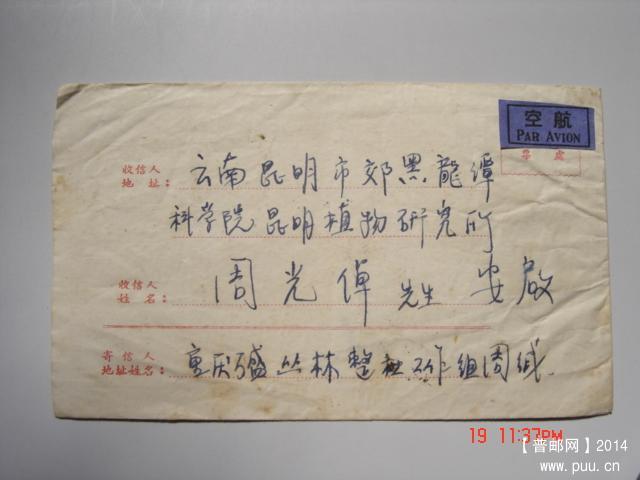 空航
PAR AVION
票 處
收信人
地 址：
云南昆明市郊黑龍潭
科学院昆明植物研究所
收信人
姓 名：
周光倬先生 安啟
寄信人
地址姓名：
重庆 盛丛林整社工作组周缄
19 11:37PM
【普邮网】2014
www.puu.cn